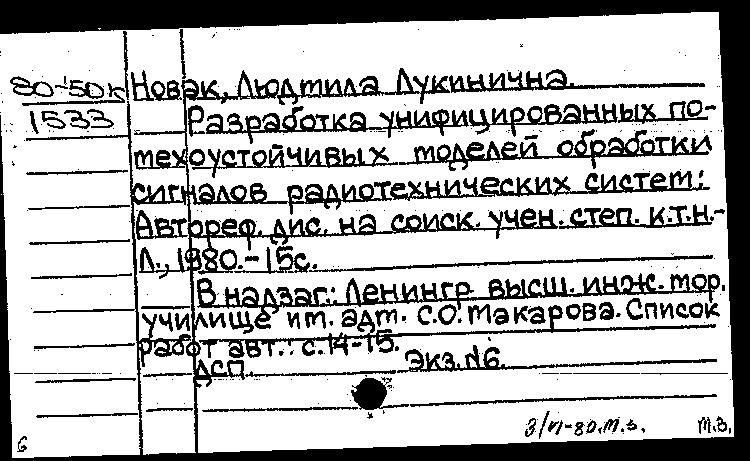 80-50к Новак, Людмила Лукинична.
1533 Разработка унифицированных по-
техоустойчивых моделей обработки
сигналов радиотехнических систем:
Автореф. дис. на соиск. учен. степ. к.т.н.-
Л., 1980.-15с.
В надзаг.: Ленингр. высш. инж. мор.
училище им. адм. С.О. Макарова. Список
работ авт.: с.14-15.
ДСП. Экз.№6.
3/VI-80.м.в. м.в.
6